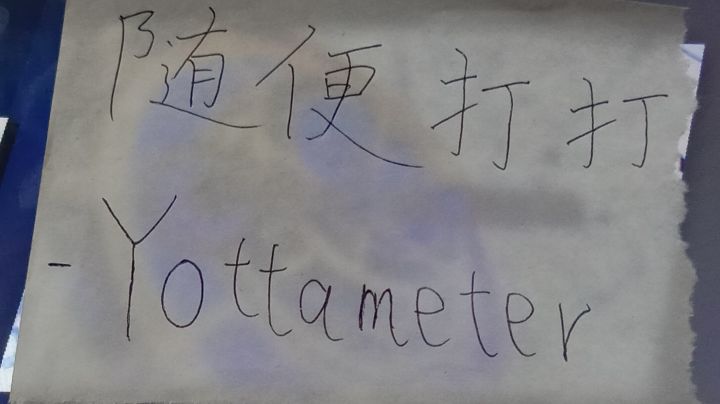 随便打打
-Yottameter